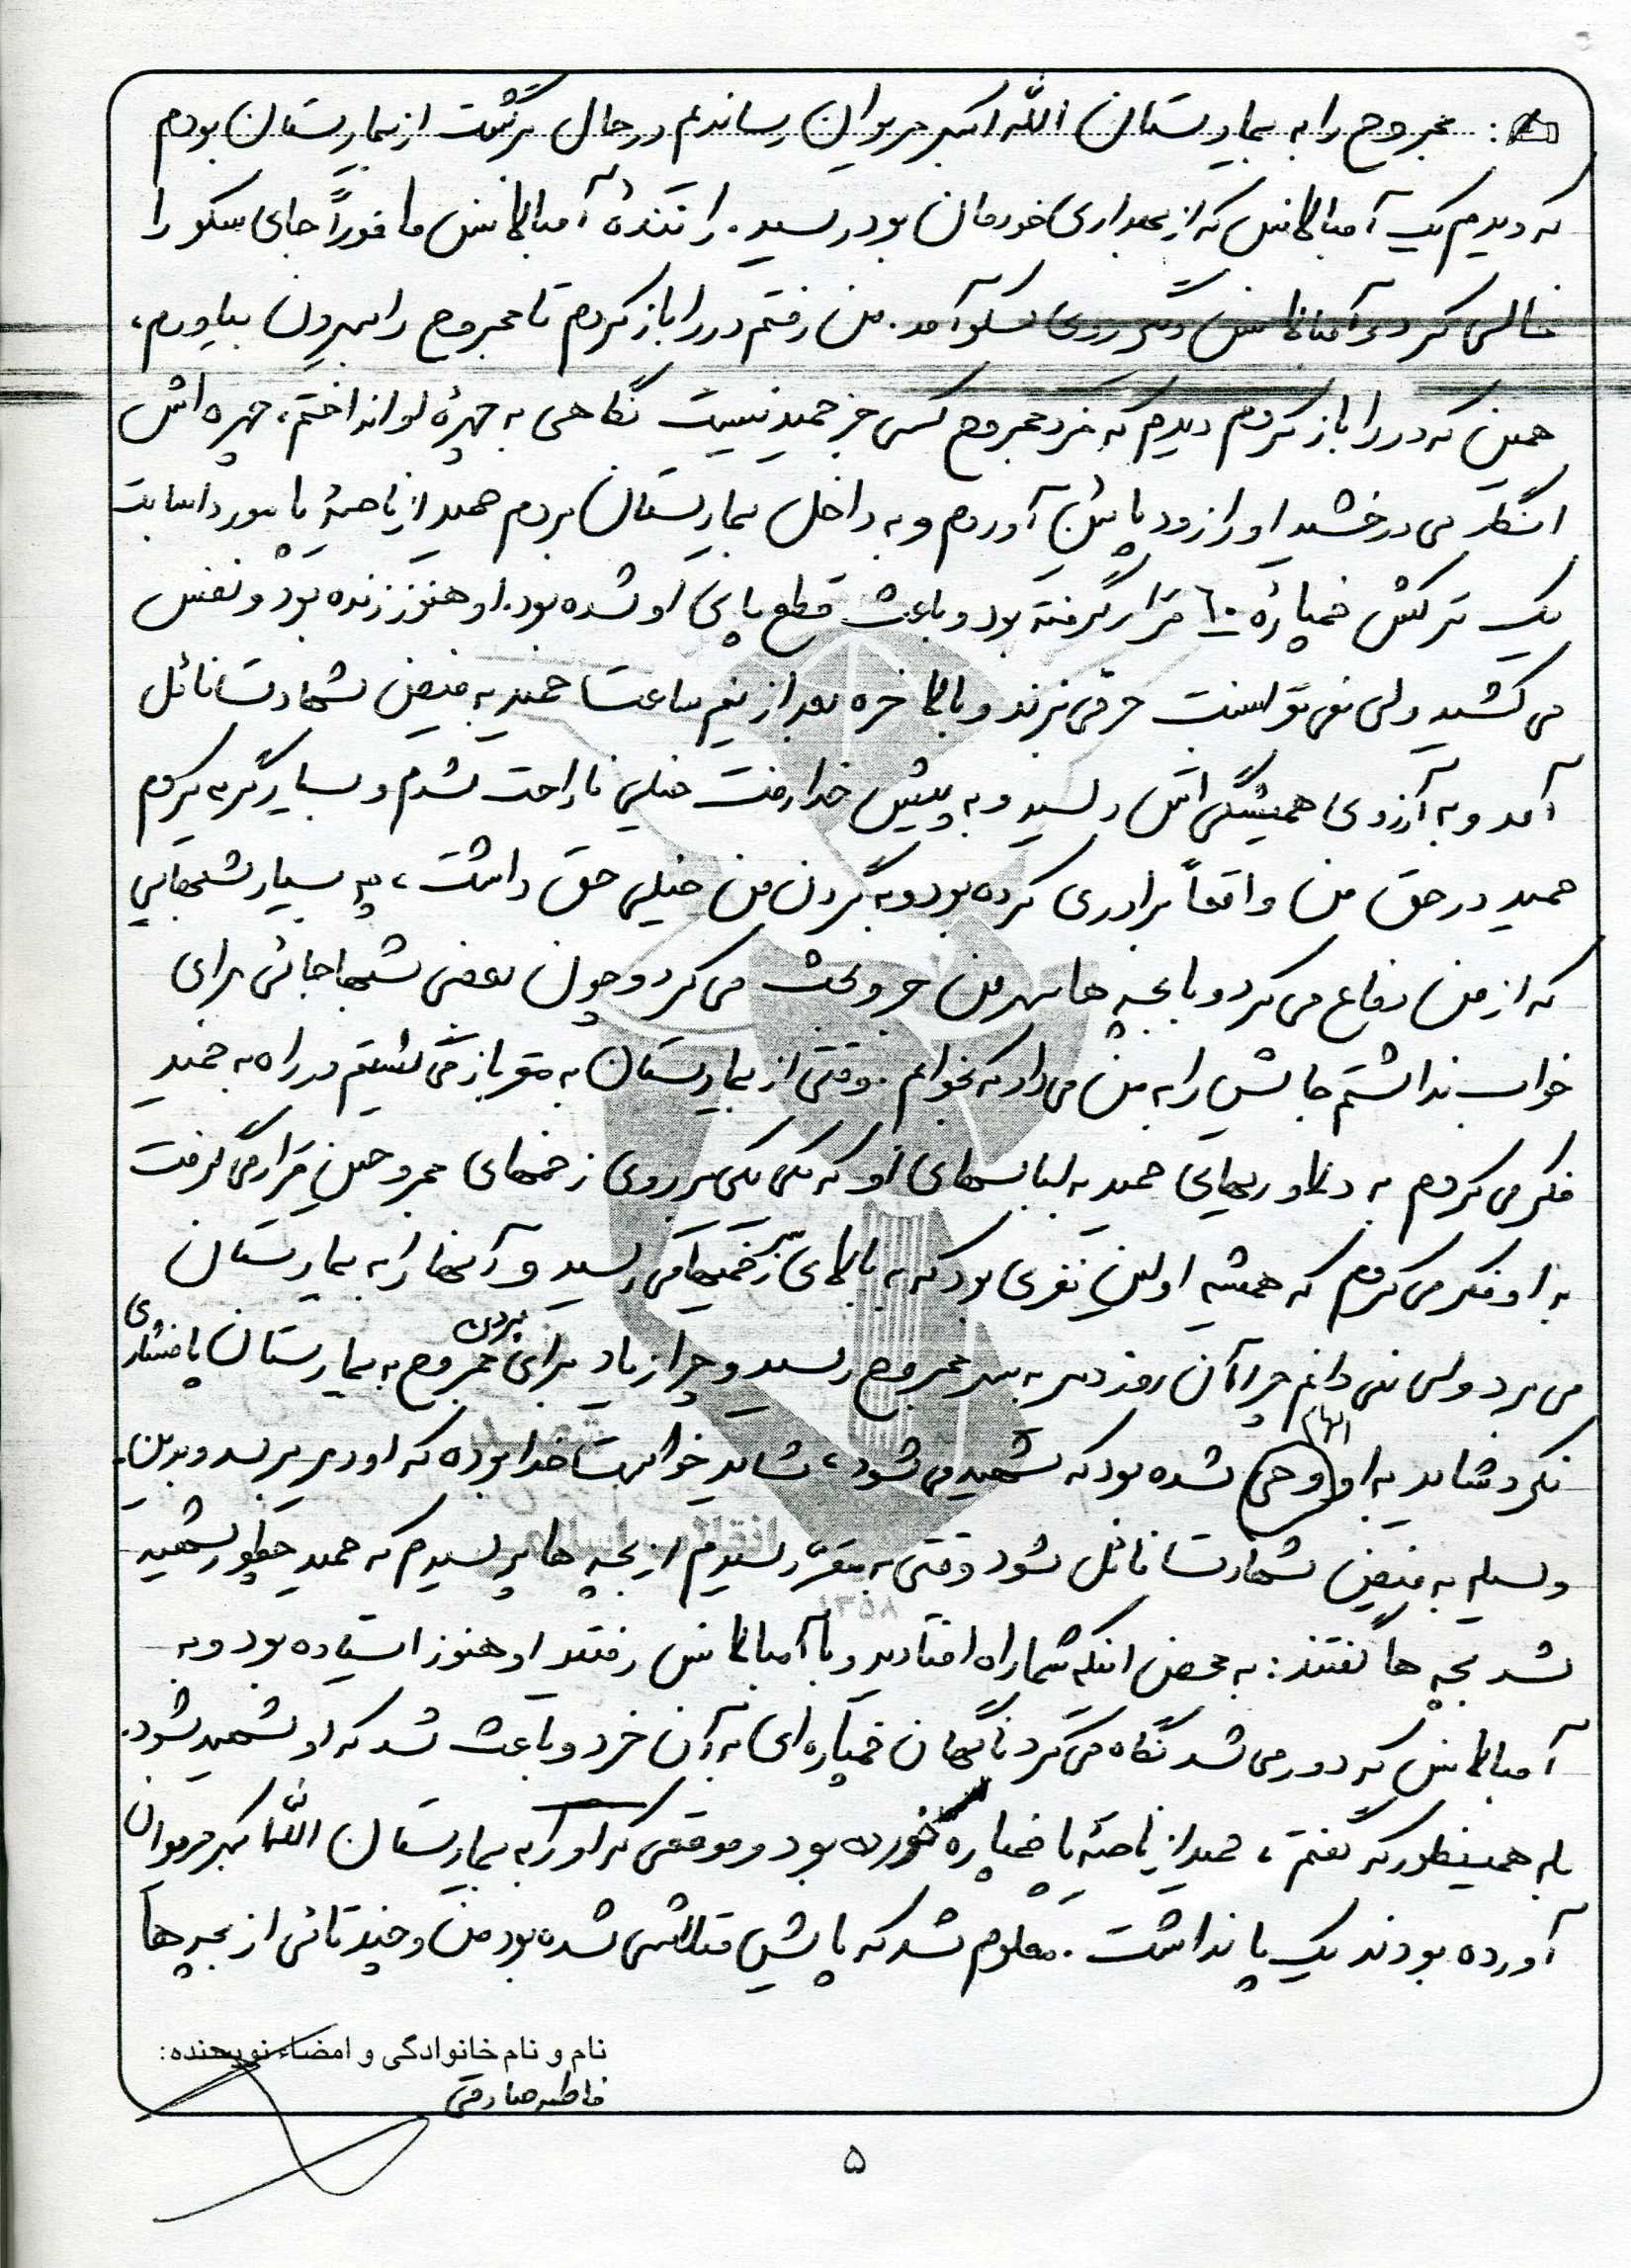 مجروح را به بیمارستان الله اکبر مریوان رساندیم در حال برگشت از بیمارستان بودم
که دیدم یک آمبولانس که از بهداری خودمان بود رسید. رانندهٔ آمبولانس ما فوراً جای سکو را
خالی کرد و آمبولانس دیگر روی سکو آمد. من رفتم در را باز کردم تا مجروح را بیرون بیاورم،
همین که در را باز کردم دیدم که فرد مجروح کسی جز حمید نیست نگاهی به چهرهٔ او انداختم، چهره اش
انگار می درخشید او را زود پائین آوردم و به داخل بیمارستان بردم حمید از ناحیهٔ پا مورد اصابت
یک ترکش خمپارهٔ ٦۰ قرار گرفته بود و باعث قطع پای او شده بود. او هنوز زنده بود و نفس
می کشید ولی نمی توانست حرفی بزند و بالاخره بعد از نیم ساعت حمید به فیض شهادت نائل
آمد و به آرزوی همیشگی اش رسید و به پیش خدا رفت خیلی ناراحت شدم و بسیار گریه کردم
حمید در حق من واقعاً برادری کرده بود و به گردن من خیلی حق داشت، چه بسیار شبهایی
که از من دفاع می کرد و با بچه ها سر من جر و بحث می کرد و چون بعضی شبها جائی برای
خواب نداشتم جایش را به من می داد که بخوابم. وقتی از بیمارستان به مقر باز می گشتیم در راه به حمید
فکر می کردم به دلاوریهای حمید به لباسهای او که یکی یکی بر روی زخمهای مجروحین قرار می گرفت
به او فکر می کردم که همیشه اولین نفری بود که به بالای سر زخمیها می رسید و آنها را به بیمارستان
می برد ولی نمی دانم چرا آن روز دیر به سر مجروح رسید و چرا زیاد برای بردن مجروح به بیمارستان پافشاری
نکرد شاید به او وحی الهام شده بود که شهید می شود، شاید خواست خدا بوده که او دیر برسد و بدین
وسیله به فیض شهادت نائل شود وقتی به مقرّ رسیدم از بچه ها پرسیدم که حمید چطور شهید
شد بچه ها گفتند: به محض اینکه شما راه افتادید و با آمبولانس رفتید او هنوز ایستاده بود و به
آمبولانس که دور می شد نگاه می کرد ناگهان خمپاره ای به آن خرد و باعث شد که او شهید شود.
بله همینطور که گفتم، حمید از ناحیهٔ پا خمپاره خورده بود و موقعی که او را به بیمارستان الله اکبر مریوان
آورده بودند یک پا نداشت. معلوم شد که پایش متلاشی شده بود من و چند تائی از بچه ها
نام و نام خانوادگی و امضاء نویسنده:
فاطمه صادقی
۵
انقلاب اسلامی
۱۳۵۸